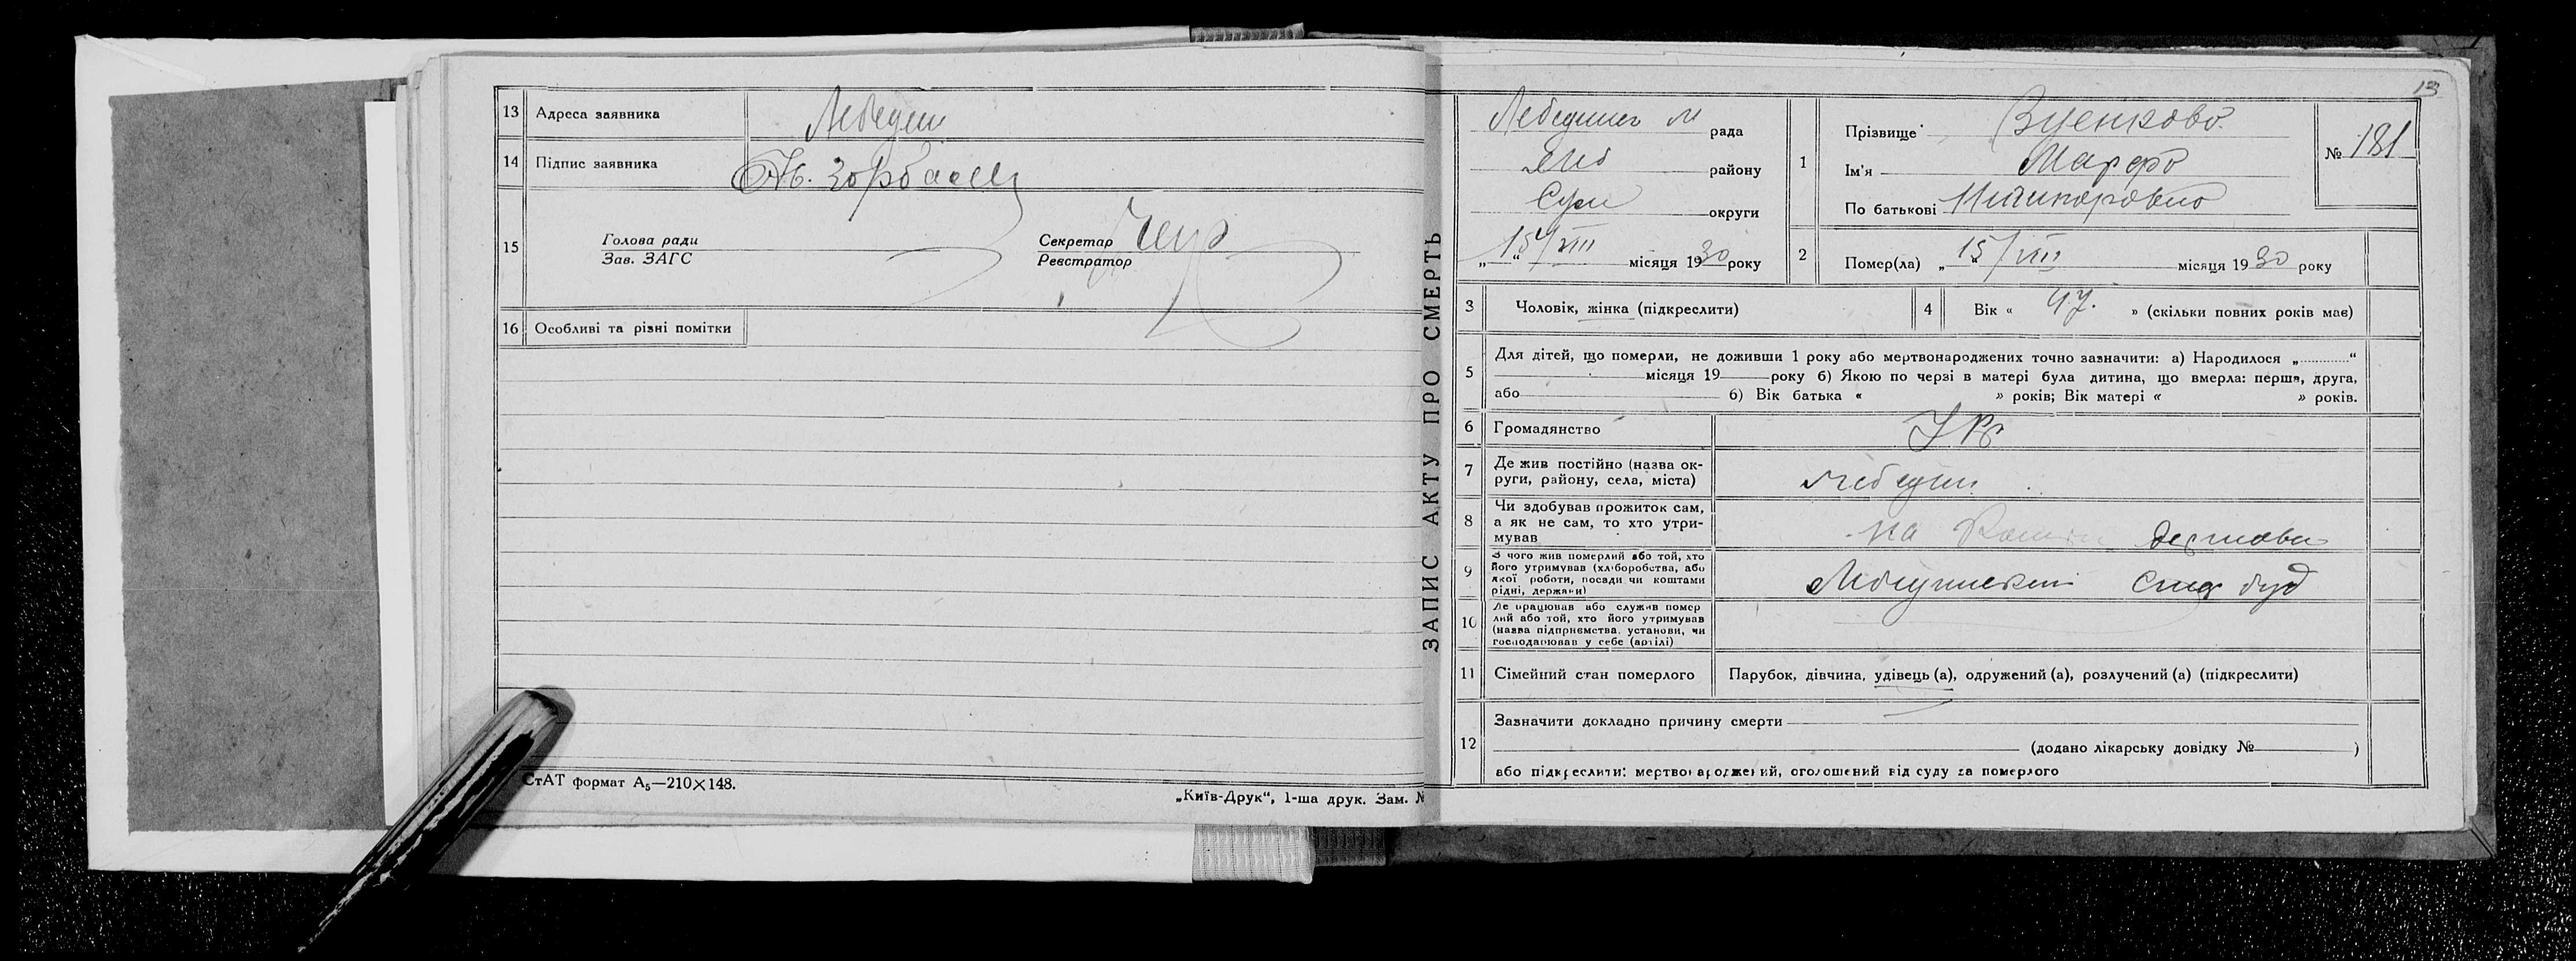 13 Адреса заявника Лебедин
14 Підпис заявника
15 Голова ради
Зав. ЗАГС
Секретар
Реєстратор
16 Особливі та різні помітки
СтАТ формат А5—210×148.
„Київ-Друк“, 1-ша друк. Зам. №
ЗАПИС АКТУ ПРО СМЕРТЬ
13
Лебединсь м рада
району
Суми округи
„15“/VIII місяця 1930 року
1 Прізвище
Ім'я Марфа
По батькові Никифоровна
№ 181
2 Помер(ла) „15“/VIII місяця 1930 року
3 Чоловік, жінка (підкреслити)
4 Вік « 47. » (скільки повних років має)
5 Для дітей, що померли, не доживши 1 року або мертвонароджених точно зазначити: а) Народилося „ “
місяця 19 року б) Якою по черзі в матері була дитина, що вмерла: перша, друга,
або б) Вік батька « » років; Вік матері « » років.
6 Громадянство Укр
7 Де жив постійно (назва ок-
руги, району, села, міста) Лебедин
8 Чи здобував прожиток сам,
а як не сам, то хто утри-
мував на держави
9 З чого жив померлий або той, хто
його утримував (хліборобства, або
якої роботи, посади чи коштами
рідні, держави) буд
10 Де працював або служив помер
лий або той, хто його утримував
(назва підприємства, установи, чи
господарював у себе (артілі)
11 Сімейний стан померлого Парубок, дівчина, удівець (а), одружений (а), розлучений (а) (підкреслити)
12 Зазначити докладно причину смерти
(додано лікарську довідку № )
або підкреслити: мертвонароджений, оголошений від суду за померлого